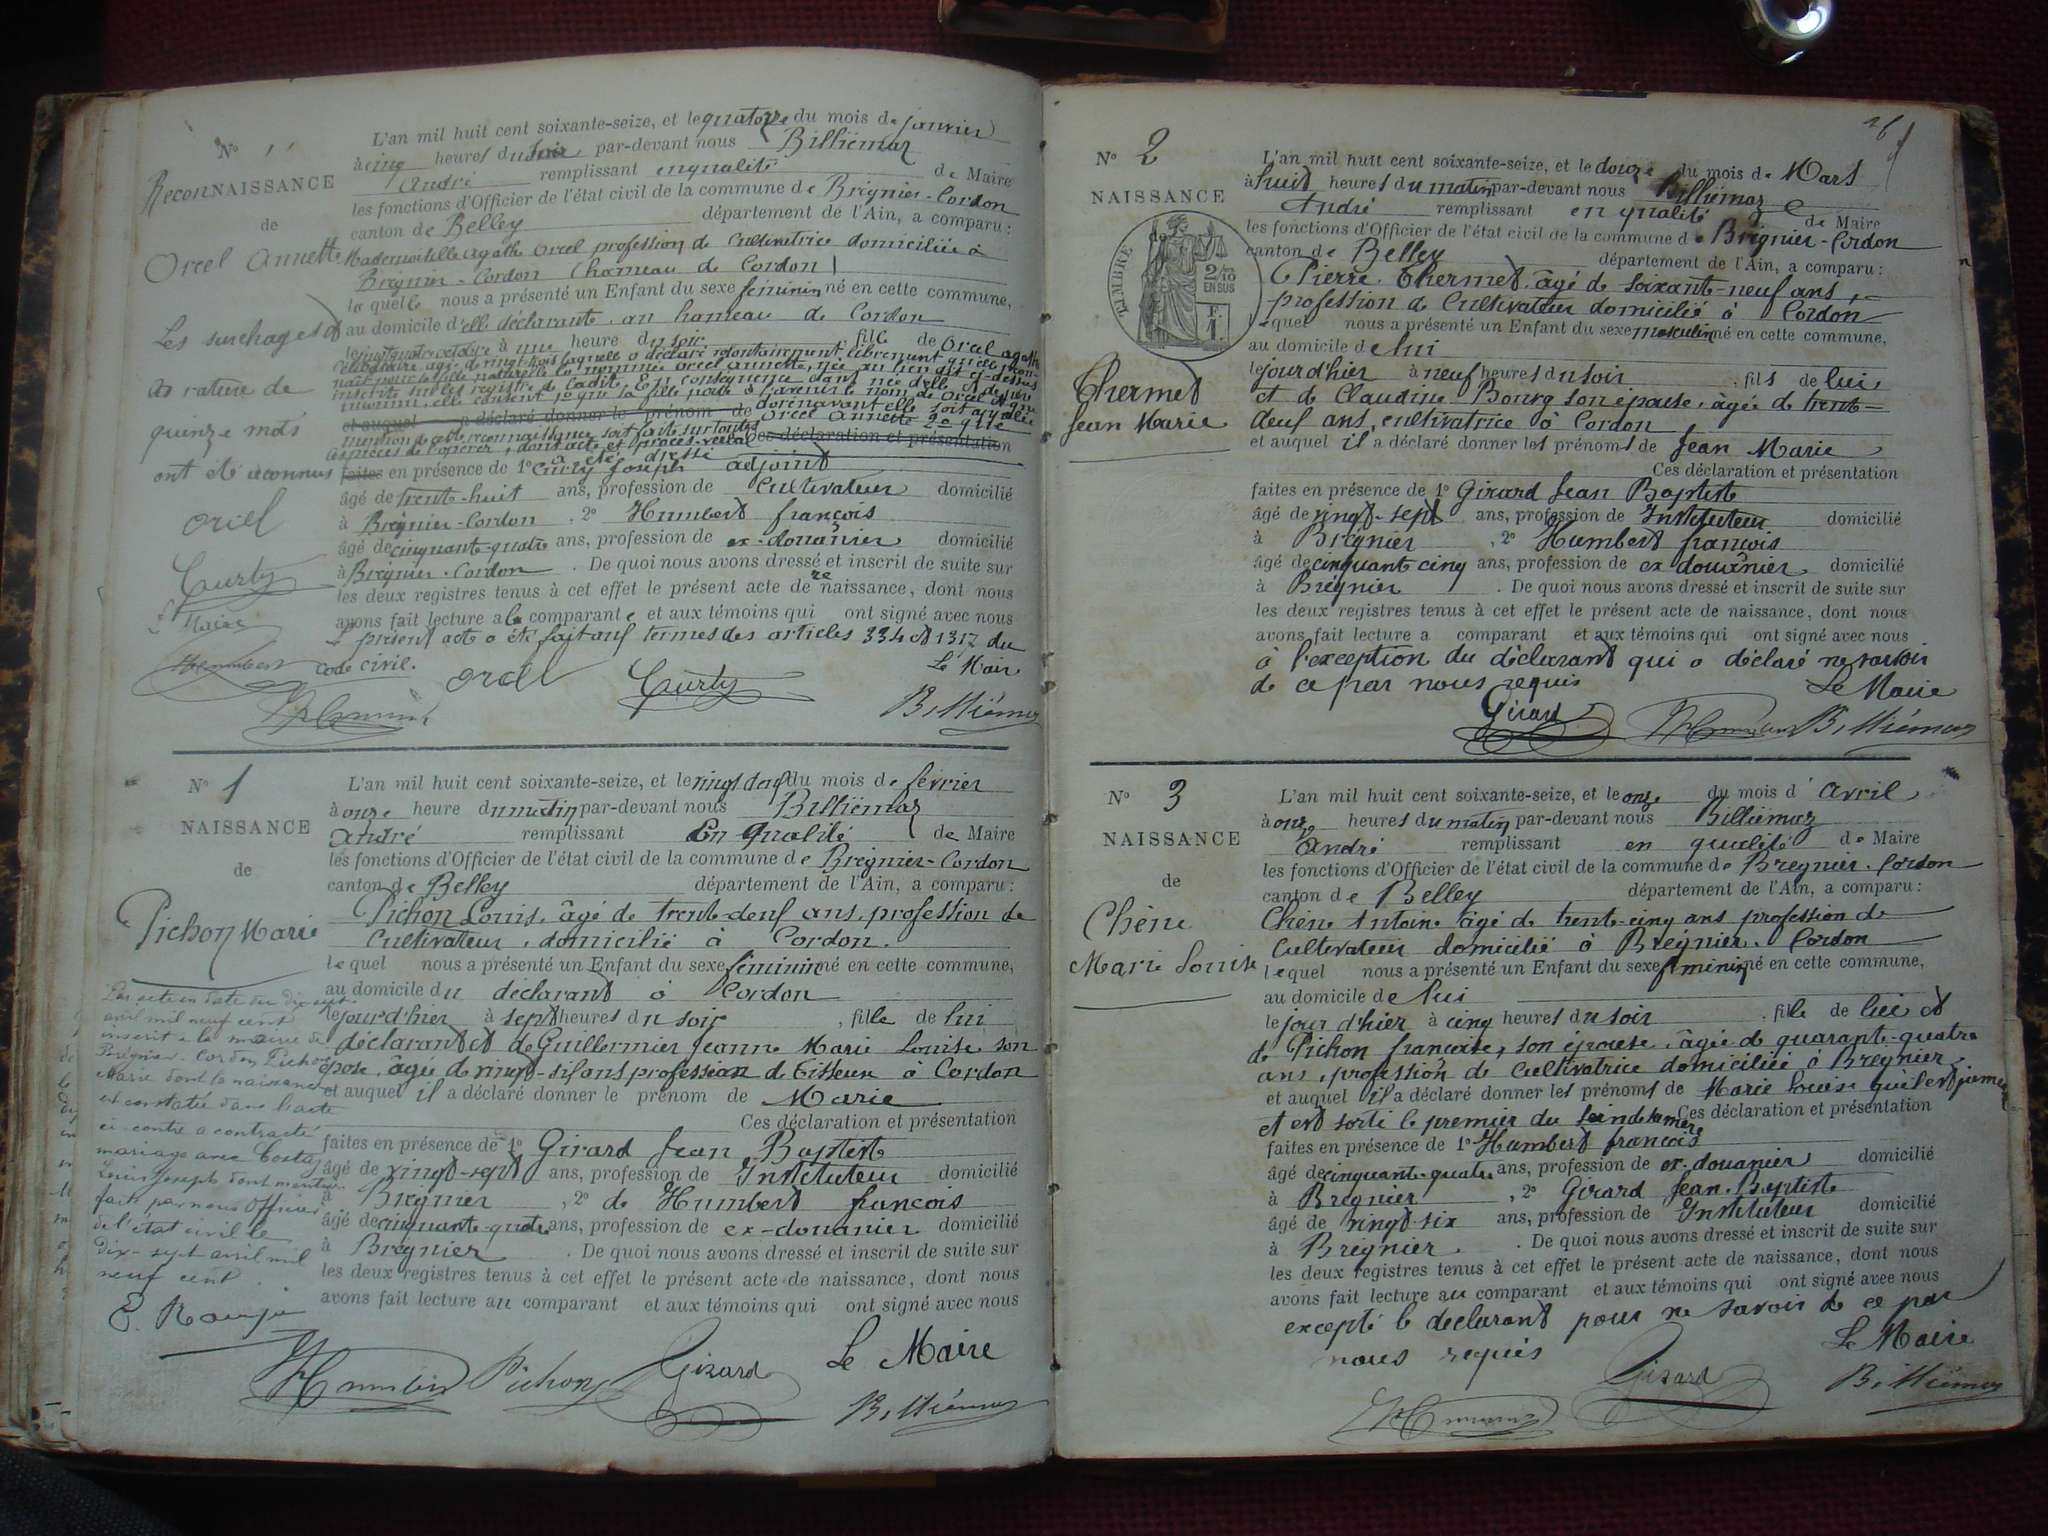 N° 1
ReconNAISSANCE
de
Orcel Annette
Les surchages et
et rature de
quinze mots
ont été reconnus
orcel
Curty
Maire
Humbert
L'an mil huit cent soixante-seize, et le quatorze du mois de janvier
à cinq heures du soir par-devant nous Billiémaz
André remplissant en qualité de Maire
les fonctions d'Officier de l'état civil de la commune de Brégnier-Cordon
canton de Belley département de l'Ain, a comparu:
Mademoiselle Agathe Orcel profession de Cultivatrice domiciliée à
Brégnier-Cordon (hameau de Cordon)
la quelle nous a présenté un Enfant du sexe féminin né en cette commune,
au domicile d'elle déclarante, au hameau de Cordon
le vingt quatre octobre à une heure du soir, fille de Orcel agathe
célibataire, âgé de vingt-trois laquelle a déclaré volontairement, librement qu'elle recon-
naît pour sa fille naturelle la nommée Orcel Annette, née au lieu dit ci-dessus
inscrite sur les registre de Cadite. En conséquence dans née d'elle et de père
inconnu, elle consent 1° que sa fille porte à l'avenir le nom de Orcel et que
dorénavant elle soit appelée
et auquel a déclaré donner le prénom de Orcel Annette 2° que
mention de cette reconnaissance soit faite sur toutes
Ces déclaration et présentation
faites en présence de 1° Curty Joseph adjoint
âgé de trente-huit ans, profession de Cultivateur domicilié
à Brégnier-Cordon, 2° Humbert françois
âgé de cinquante-quatre ans, profession de ex-douanier domicilié
à Brégnier-Cordon. De quoi nous avons dressé et inscrit de suite sur
les deux registres tenus à cet effet le présent acte de renaissance, dont nous
avons fait lecture a la comparante et aux témoins qui ont signé avec nous
Le présent acte a été fait aux termes des articles 334 et 1317 du
code civil. Le Maire
orcel Curty Billiémaz
Humbert
N° 1
NAISSANCE
de
Pichon Marie
Par acte en date du dix sept
avril mil neuf cent
inscrit à la mairie de
Brégnier-Cordon Pichon
Marie dont la naissance
est constatée dans l'acte
ci-contre a contracté
mariage avec Costaz
Louis Joseph dont mention
faite par nous Officier
de l'état civil le
dix-sept avril mil
neuf cent.
L'an mil huit cent soixante-seize, et le vingt deuf du mois de février
à onze heure du matin par-devant nous Billiémaz
André remplissant En qualité de Maire
les fonctions d'Officier de l'état civil de la commune de Brégnier-Cordon
canton de Belley département de l'Ain, a comparu:
Pichon Louis, âgé de trente-deuf ans, profession de
Cultivateur, domicilié à Cordon.
le quel nous a présenté un Enfant du sexe féminin né en cette commune,
au domicile du déclarant à Cordon
le jour d'hier à sept heures du soir, fille de lui
déclarant et de Guillermier Jeanne Marie Louise son
épose, âgée de vingt-sif ans profession de tisseur à Cordon
et auquel il a déclaré donner le prénom de Marie
Ces déclaration et présentation
faites en présence de 1° Girard Jean Baptiste
âgé de vingt-sept ans, profession de Instituteur domicilié
à Brégnier, 2° de Humbert françois
âgé de cinquante-quatre ans, profession de ex-douanier domicilié
à Brégnier. De quoi nous avons dressé et inscrit de suite sur
les deux registres tenus à cet effet le présent acte de naissance, dont nous
avons fait lecture au comparant et aux témoins qui ont signé avec nous
Humbert Pichon Girard Le Maire
Billiémaz
26
N° 2
NAISSANCE
de
TIMBRE
2/10
EN SUS
F.
1.
Thermet
Jean Marie
L'an mil huit cent soixante-seize, et le douze du mois de Mars
à huit heures du matin par-devant nous Billiémaz
André remplissant en qualité de Maire
les fonctions d'Officier de l'état civil de la commune de Brégnier-Cordon
canton de Belley département de l'Ain, a comparu:
Pierre Thermet, âgé de soixante-neuf ans,
profession de Cultivateur domicilié à Cordon
le quel nous a présenté un Enfant du sexe masculin né en cette commune,
au domicile de lui
le jour d'hier à neuf heures du soir, fils de lui,
et de Claudine Bourg son épouse, âgée de trente-
deuf ans, cultivatrice à Cordon
et auquel il a déclaré donner les prénoms de Jean Marie
Ces déclaration et présentation
faites en présence de 1° Girard Jean Baptiste
âgé de vingt-sept ans, profession de Instituteur domicilié
à Brégnier, 2° Humbert françois
âgé de cinquante cinq ans, profession de ex douanier domicilié
à Brégnier. De quoi nous avons dressé et inscrit de suite sur
les deux registres tenus à cet effet le présent acte de naissance, dont nous
avons fait lecture a comparant et aux témoins qui ont signé avec nous
à l'exception du déclarant qui a déclaré ne savoir
de ce par nous requis Le Maire
Girard Humbert Billiémaz
N° 3
NAISSANCE
de
Chêne
Marie Louise
L'an mil huit cent soixante-seize, et le onze du mois d'avril
à onze heures du matin par-devant nous Billiémaz
André remplissant en qualité de Maire
les fonctions d'Officier de l'état civil de la commune de Brégnier-Cordon
canton de Belley département de l'Ain, a comparu:
Chêne Antoine âgé de trente-cinq ans profession de
Cultivateur domicilié à Brégnier-Cordon
le quel nous a présenté un Enfant du sexe féminin né en cette commune,
au domicile de lui
le jour d'hier à cinq heures du soir, fille de lui et
de Pichon françoise, son épouse, âgée de quarante-quatre
ans, profession de Cultivatrice domiciliée à Brégnier,
et auquel il a déclaré donner les prénoms de Marie Louise qu'il est jumeau
et est sorti le premier du sein de sa mère Ces déclaration et présentation
faites en présence de 1° Humbert françois
âgé de cinquante-quatre ans, profession de ex-douanier domicilié
à Brégnier, 2° Girard Jean-Baptiste
âgé de vingt-six ans, profession de Instituteur domicilié
à Brégnier. De quoi nous avons dressé et inscrit de suite sur
les deux registres tenus à cet effet le présent acte de naissance, dont nous
avons fait lecture au comparant et aux témoins qui ont signé avec nous
excepté le déclarant pour ne savoir de ce par
nous requis Le Maire
Humbert Girard Billiémaz